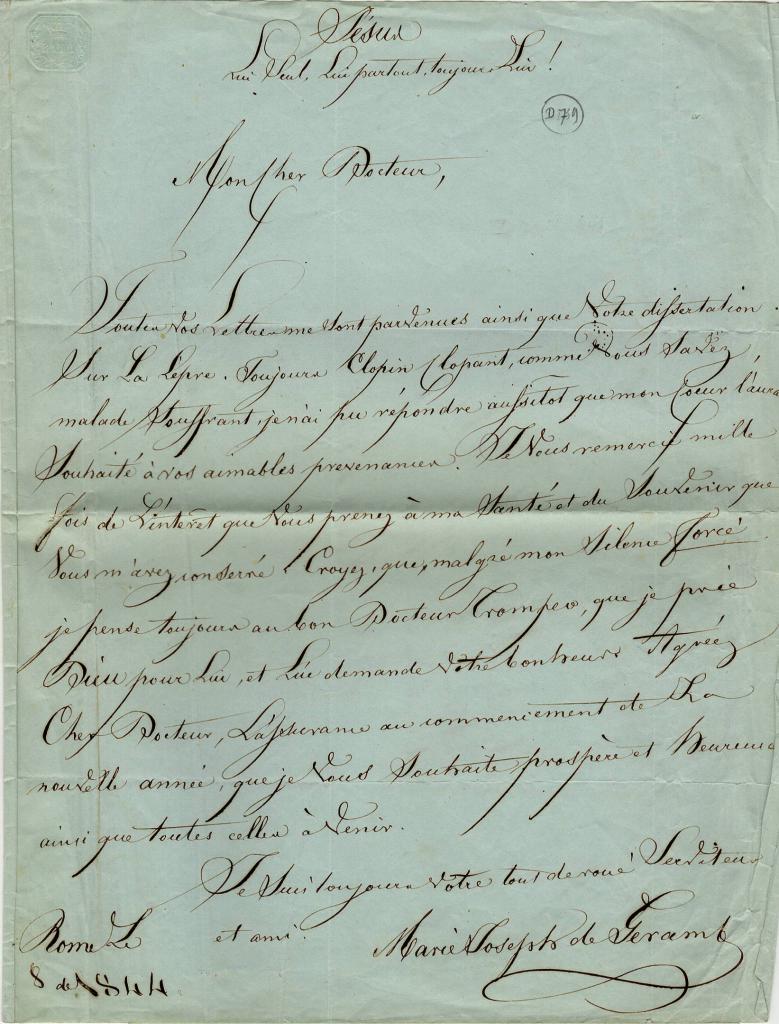 Jésus
Lui Seul, Lui partout, toujours Lui!
D 79
Mon Cher Docteur,
Toutes vos Lettres me sont parvenues ainsi que Votre dissertation
Sur La Lepre. Toujours Clopin Clopant, comme Vous Savéz,
malade Souffrant, je n'ai pu répondre aussitot que mon Coeur l'aura
Souhaité à vos aimables prevenances. Je Vous remercie mille
fois de L'intéret que Vous prenez à ma Santé et du Souvenir que
Vous m'avez conservé. Croyez, que, malgré mon Silence forcé
je pense toujours au bon Docteur Trompeo, que je prie
Dieu pour Lui, et Lui demande Votre bonheur. Agréez
Cher Docteur, L'assurance au commencement de La
nouvelle année, que je Vous Souhaite prospère et heureuse
ainsi que toutes celles à Venir.
Je Suis toujours Votre tout devoué Serviteur
et ami.
Marie Joseph de Geramb
Rome Le
8 de 1844